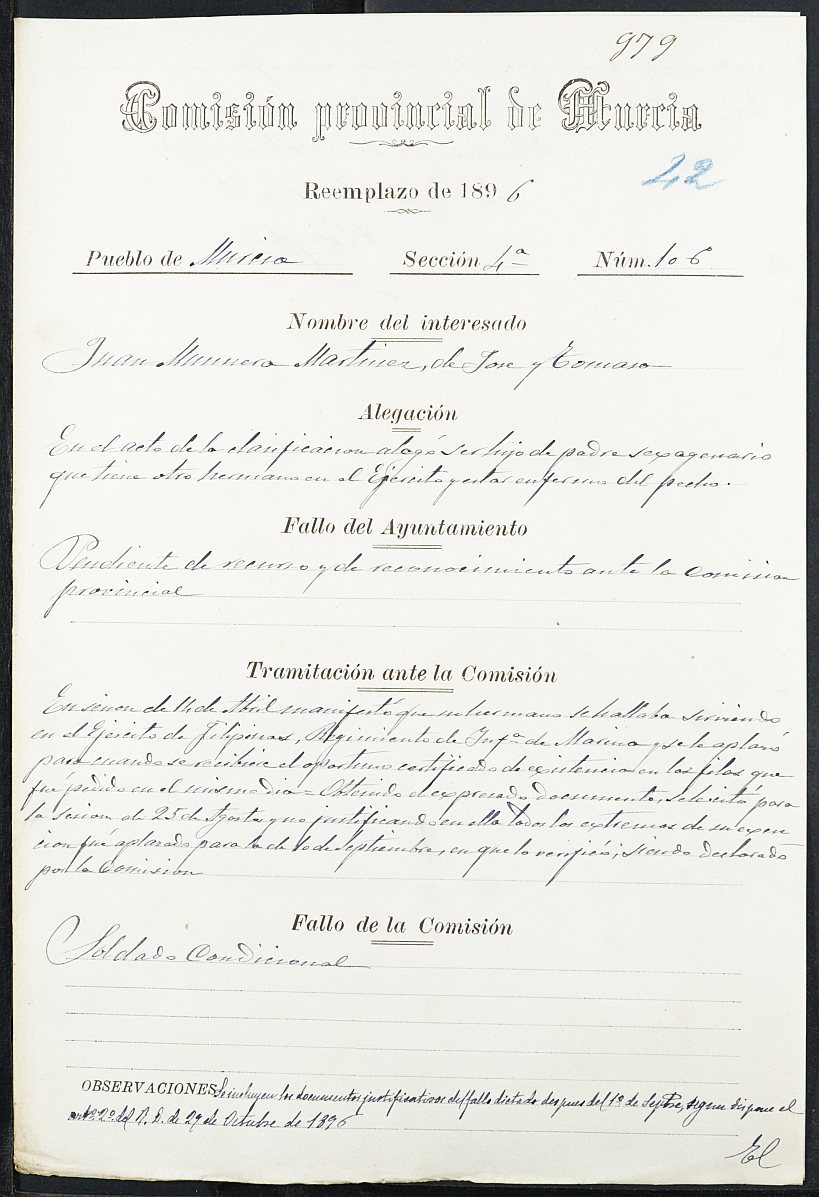 979
Comisión provincial de Murcia
42
Reemplazo de 1896
Pueblo de Murcia Sección 4ª Núm. 106
Nombre del interesado
Juan Munuera Martinez, de Jose y Tomasa
Alegación
En el acto de la clasificacion alegó ser hijo de padre sexagenario
que tiene otro hermano en el Ejército y estar enfermo del pecho.
Fallo del Ayuntamiento
Pendiente de recurso y de reconocimiento ante la comision
provincial
Tramitación ante la Comisión
En sesion de 14 de Abril manifestó que su hermano se hallaba sirviendo
en el Ejército de Filipinas, Regimiento de Infª de Marina y se le aplazó
para cuando se recibiese el oportuno certificado de existencia en las filas que
fué pedido en el mismo dia = Obtenido el expresado documento, se le citó para
la sesion de 25 de Agosto y no justificando en ella todos los extremos de su exen
cion fué aplazado para la de 10 de Septiembre, en que lo verificó; siendo declarado
por la Comision
Fallo de la Comisión
Soldado Condicional
OBSERVACIONES Se incluyen los documentos justificativos del fallo dictado despues del 1º de Sepbre, segun dispone el
artº 2º del R. D. de 29 de Octubre de 1896
El